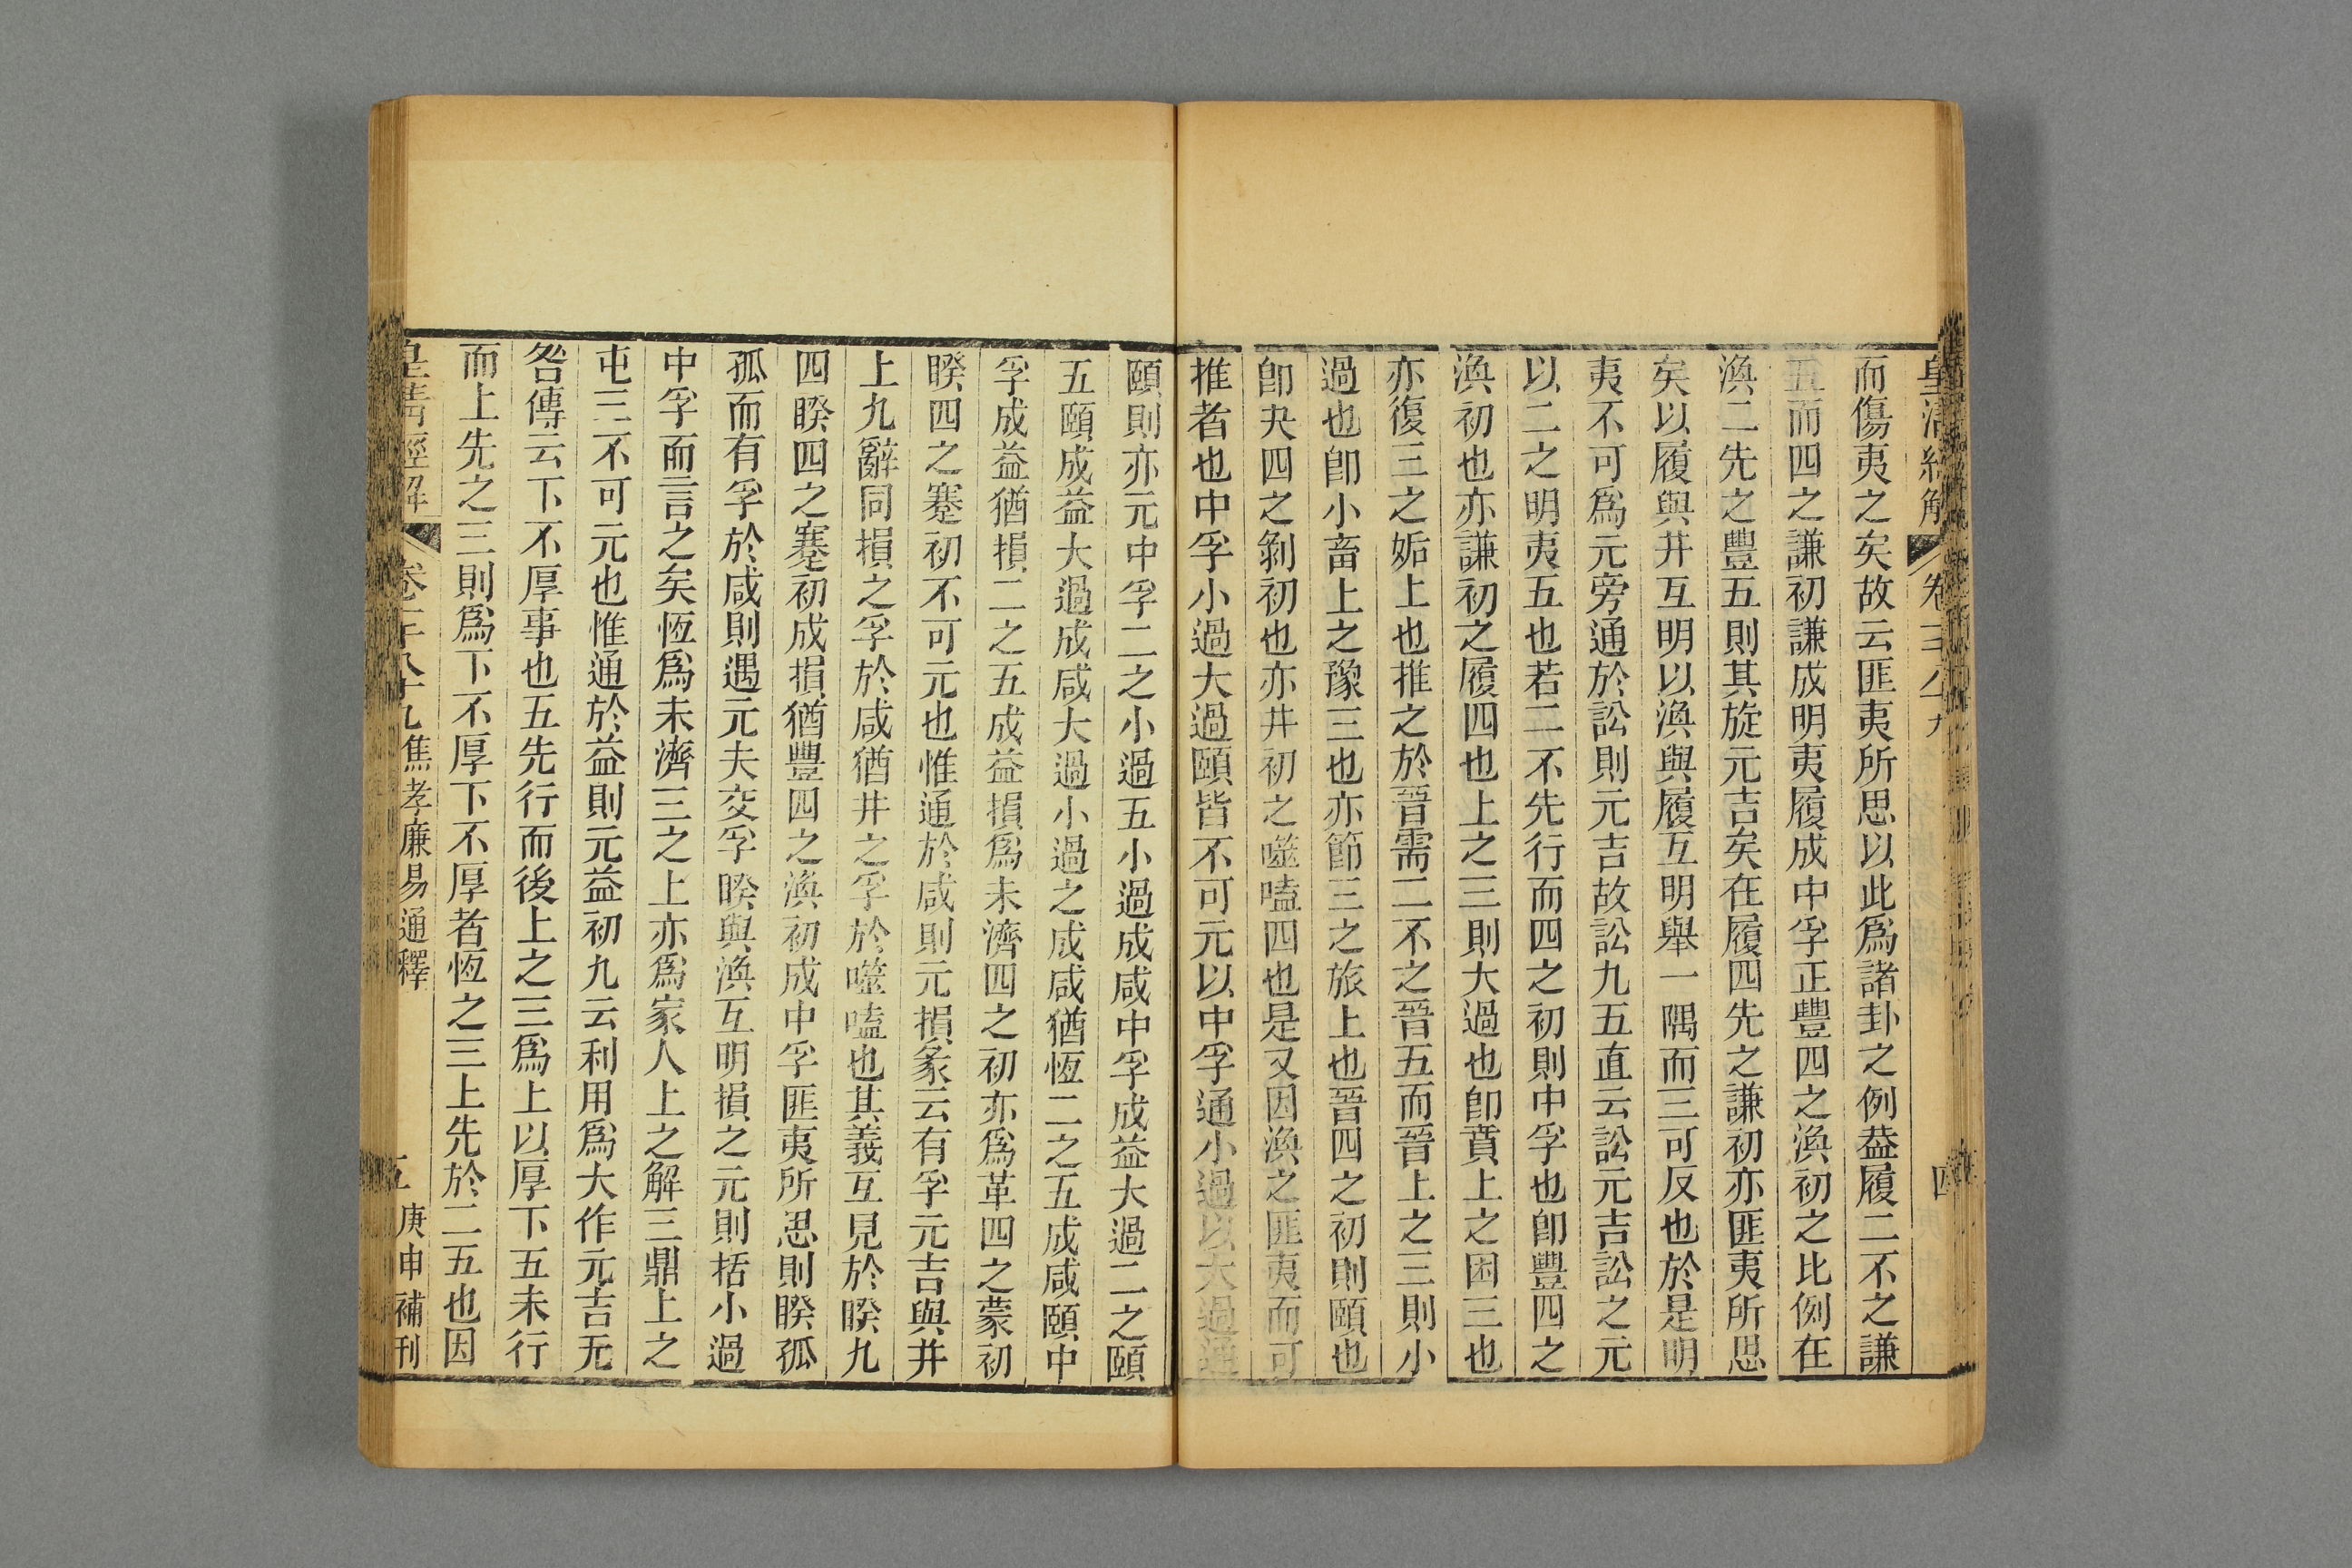 皇清經解 卷千八十九 四
而傷夷之矣故云匪夷所思以此爲諸卦之例葢履二不之謙
五而四之謙初謙成明夷履成中孚正豐四之渙初之比例在
渙二先之豐五則其旋元吉矣在履四先之謙初亦匪夷所思
矣以履與井互明以渙與履互明舉一隅而三可反也於是明
夷不可爲元旁通於訟則元吉故訟九五直云訟元吉訟之元
以二之明夷五也若二不先行而四之初則中孚也卽豐四之
渙初也亦謙初之履四也上之三則大過也卽賁上之困三也
亦復三之姤上也推之於晉需二不之晉五而晉上之三則小
過也卽小畜上之豫三也亦節三之旅上也晉四之初則頤也
卽夬四之剝初也亦井初之噬嗑四也是又因渙之匪夷而可
推者也中孚小過大過頤皆不可元以中孚通小過以大過通
頤則亦元中孚二之小過五小過成咸中孚成益大過二之頤
五頤成益大過成咸大過小過之成咸猶恆二之五成咸頤中
孚成益猶損二之五成益損爲未濟四之初亦爲革四之蒙初
睽四之蹇初不可元也惟通於咸則元損彖云有孚元吉與井
上九辭同損之孚於咸猶井之孚於噬嗑也其義互見於睽九
四睽四之蹇初成損猶豐四之渙初成中孚匪夷所思則睽孤
孤而有孚於咸則遇元夫交孚睽與渙互明損之元則括小過
中孚而言之矣恆爲未濟三之上亦爲家人上之解三鼎上之
屯三不可元也惟通於益則元益初九云利用爲大作元吉无
咎傳云下不厚事也五先行而後上之三爲上以厚下五未行
而上先之三則爲下不厚下不厚者恆之三上先於二五也因
皇清經解 卷千八十九 焦孝廉易通釋 五 庚申補刊